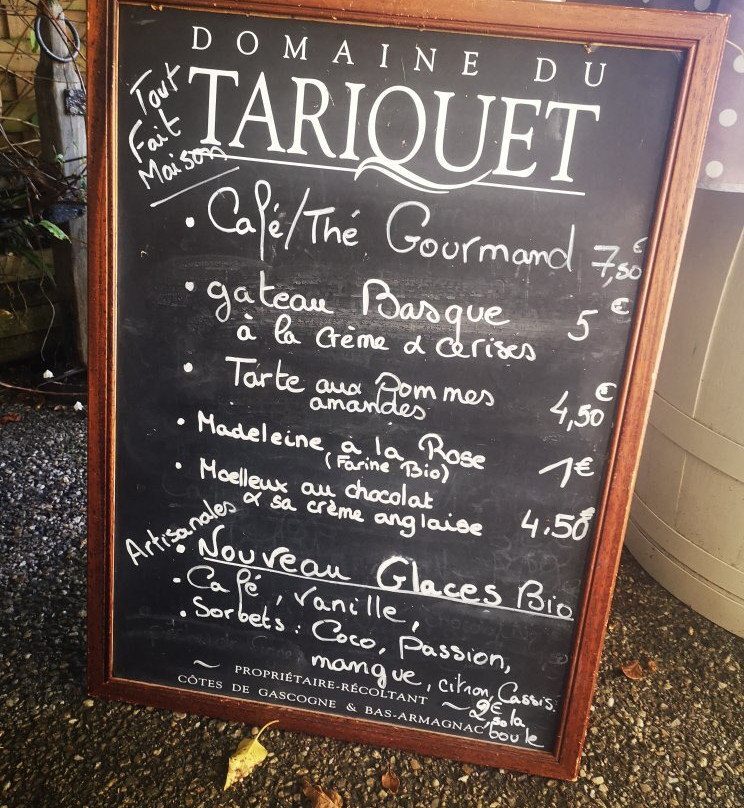 DOMAINE DU
TARIQUET
Tout
Fait
Maison
• Café/Thé Gourmand 7,50€
• gateau Basque 5€
à la crème & cerises
• Tarte aux Pommes
amandes 4,50€
• Madeleine à la Rose 1€
(Farine Bio)
• Moelleux au chocolat
& sa crème anglaise 4.50€
Artisanales
• Nouveau Glaces Bio
• Café, Vanille,
• Sorbets : Coco, Passion,
mangue, citron, Cassis.
~ PROPRIÉTAIRE-RÉCOLTANT ~
CÔTES DE GASCOGNE & BAS-ARMAGNAC
2€50 la
boule